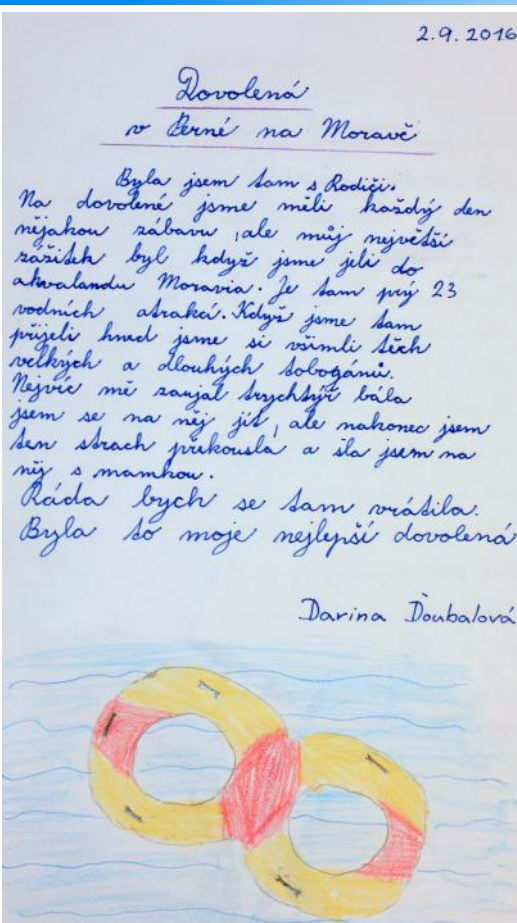 2.9.2016
Dovolená
v Perné na Moravě
Byla jsem tam s Rodiči.
Na dovolené jsme měli každý den
nějakou zábavu, ale můj největší
zážitek byl když jsme jeli do
akvalandu Moravia. Je tam prý 23
vodních atrakcí. Když jsme tam
přijeli hned jsme si všimli těch
velkých a dlouhých tobogánů.
Nejvíc mě zaujal trychtýř bála
jsem se na něj jít, ale nakonec jsem
ten strach překousla a šla jsem na
něj s mamkou.
Ráda bych se tam vrátila.
Byla to moje nejlepší dovolená
Darina Doubalová